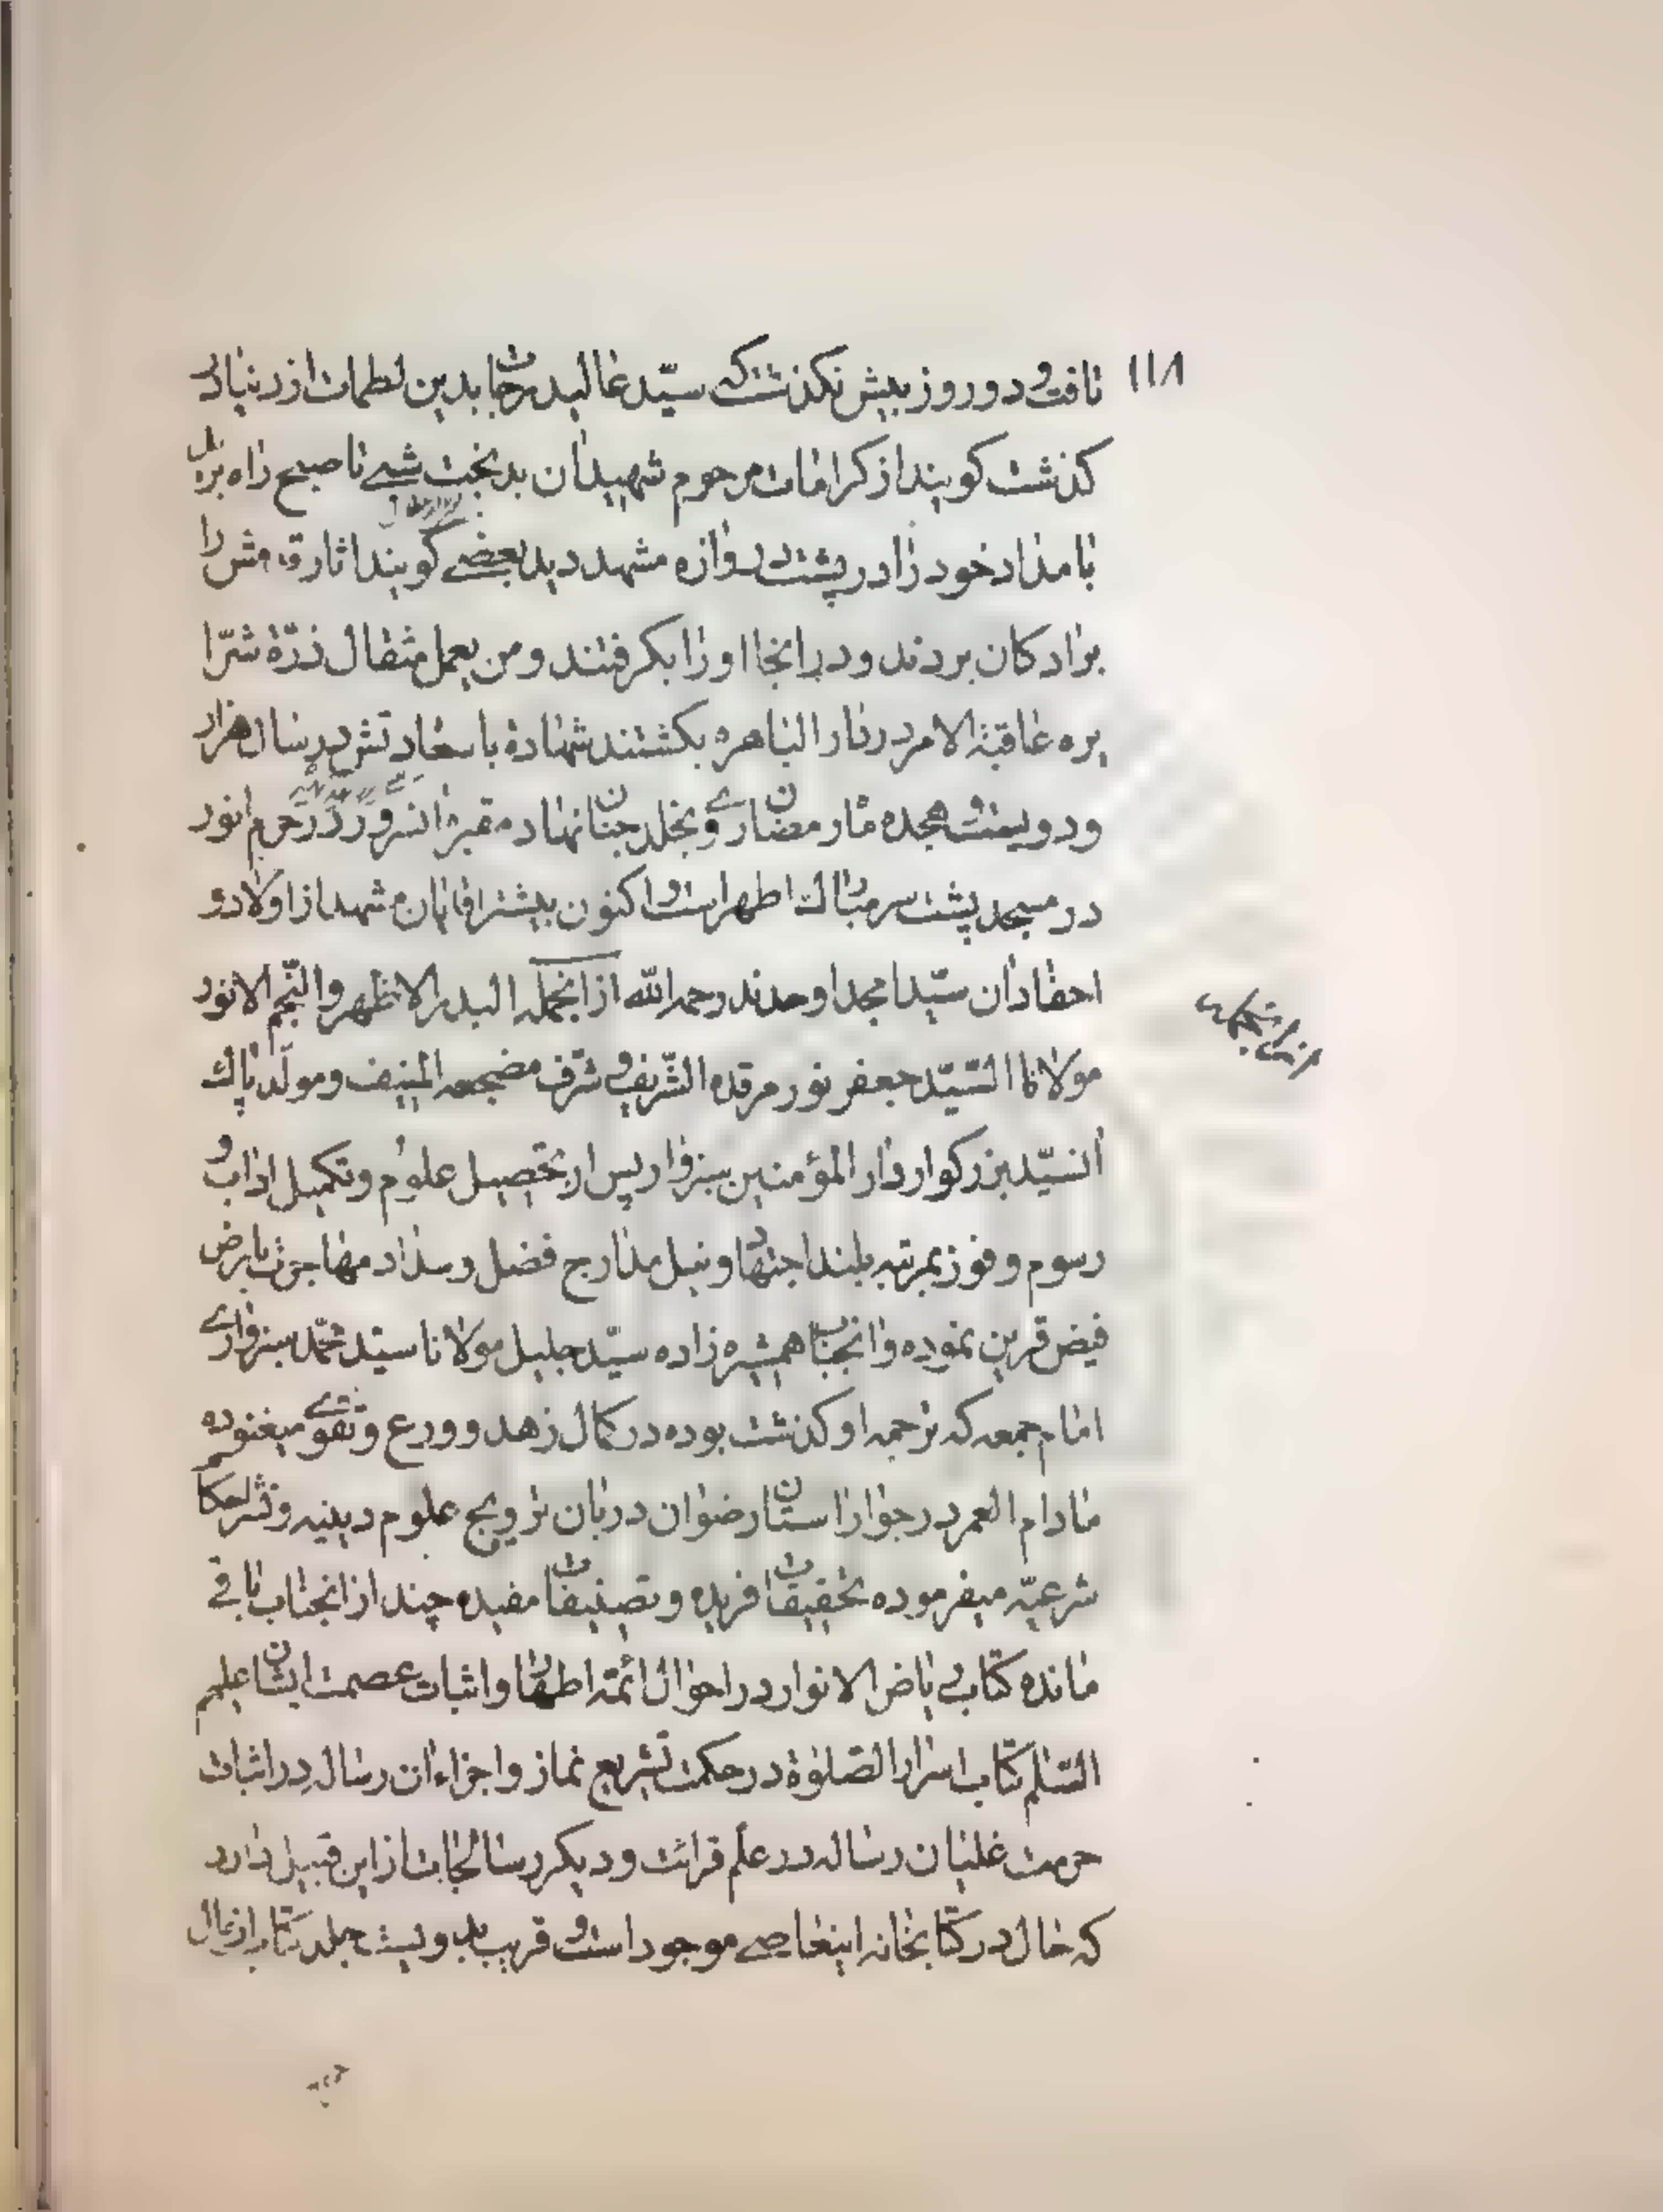 ۱۱۸
تافت و دو روز بیش نکذشت که سیّد عالیدرجات بدین لطمات از دنیا در
کذشت کویند از کرامات مرحوم شهید ان بدبخت شبی تا صبح راه برید
بامداد خود را در پشت دروازه مشهد دید بعضی کویند اثار قدمش را
براد کان بردند و در انجا او را بکرفتند و من یعمل مثقال ذرّة شرّا
یره عاقبة الامر در نار الباهره بکشتند شهادة با سعادتش در سال هزار
و دویست و هجده ماه رمضان روی بخلد جنان نهاد مقبره انسرور در حرم انور
در مسجد پشت سر مبارك اطهر است و اکنون بیشتر اقایان مشهد از اولاد و
احفاد ان سیّد امجد اوحدند رحمه الله از انجمله البدر الاظهر والنّجم الانور
مولانا السّیّد جعفر نور مرقده الشّریف و شرف مضجعه المنیف و مولد پاك
انسیّد بزرکوار دار المؤمنین سبزوار پس از تحصیل علوم و تکمیل اداب و
رسوم و فوز بمرتبه بلند اجتهاد و نیل مدارج فضل و سداد مهاجرت بارض
فیض قرین نموده و انجناب همشیره زاده سیّد جلیل مولانا سیّد محمّد سبزواری
امام جمعه که ترجمه او کذشت بوده در کمال زهد و ورع و تقوی میغنوده
مادام العمر در جوار استان رضوان دربان ترویج علوم دینیه و نشر احکام
شرعیّه میفرموده تحقیقات فریده و تصنیفات مفیده چند از انجناب باقی
مانده کتاب ریاض الانوار در احوال ائمّه اطهار و اثبات عصمت ایشان علیهم
السّلم کتاب اسرار الصّلوٰة در حکمت تشریع نماز و اجزاء ان رساله در اثبات
حرمت غلیان رساله در علم قرائت و دیکر رسالجات از این قبیل دارد
که حال در کتابخانه اینعاصی موجود است و قریب بدویست جلد کتاب از